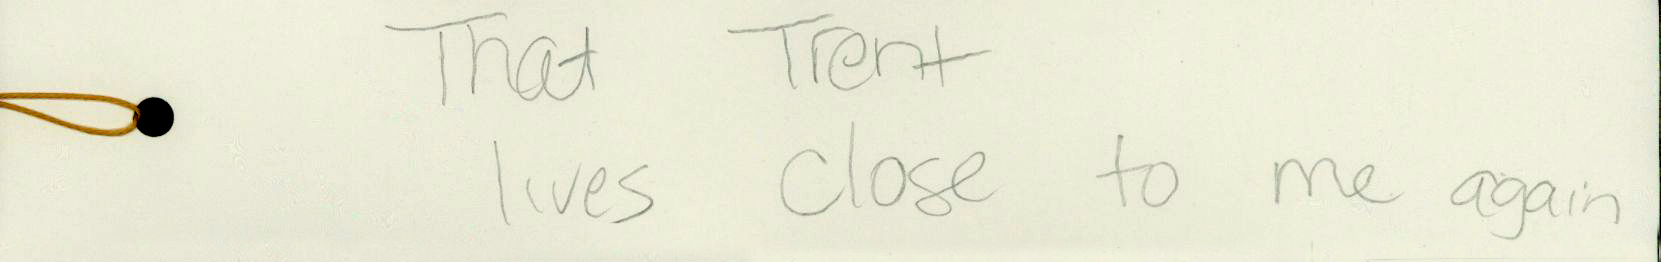 That Trent
lives close to me again